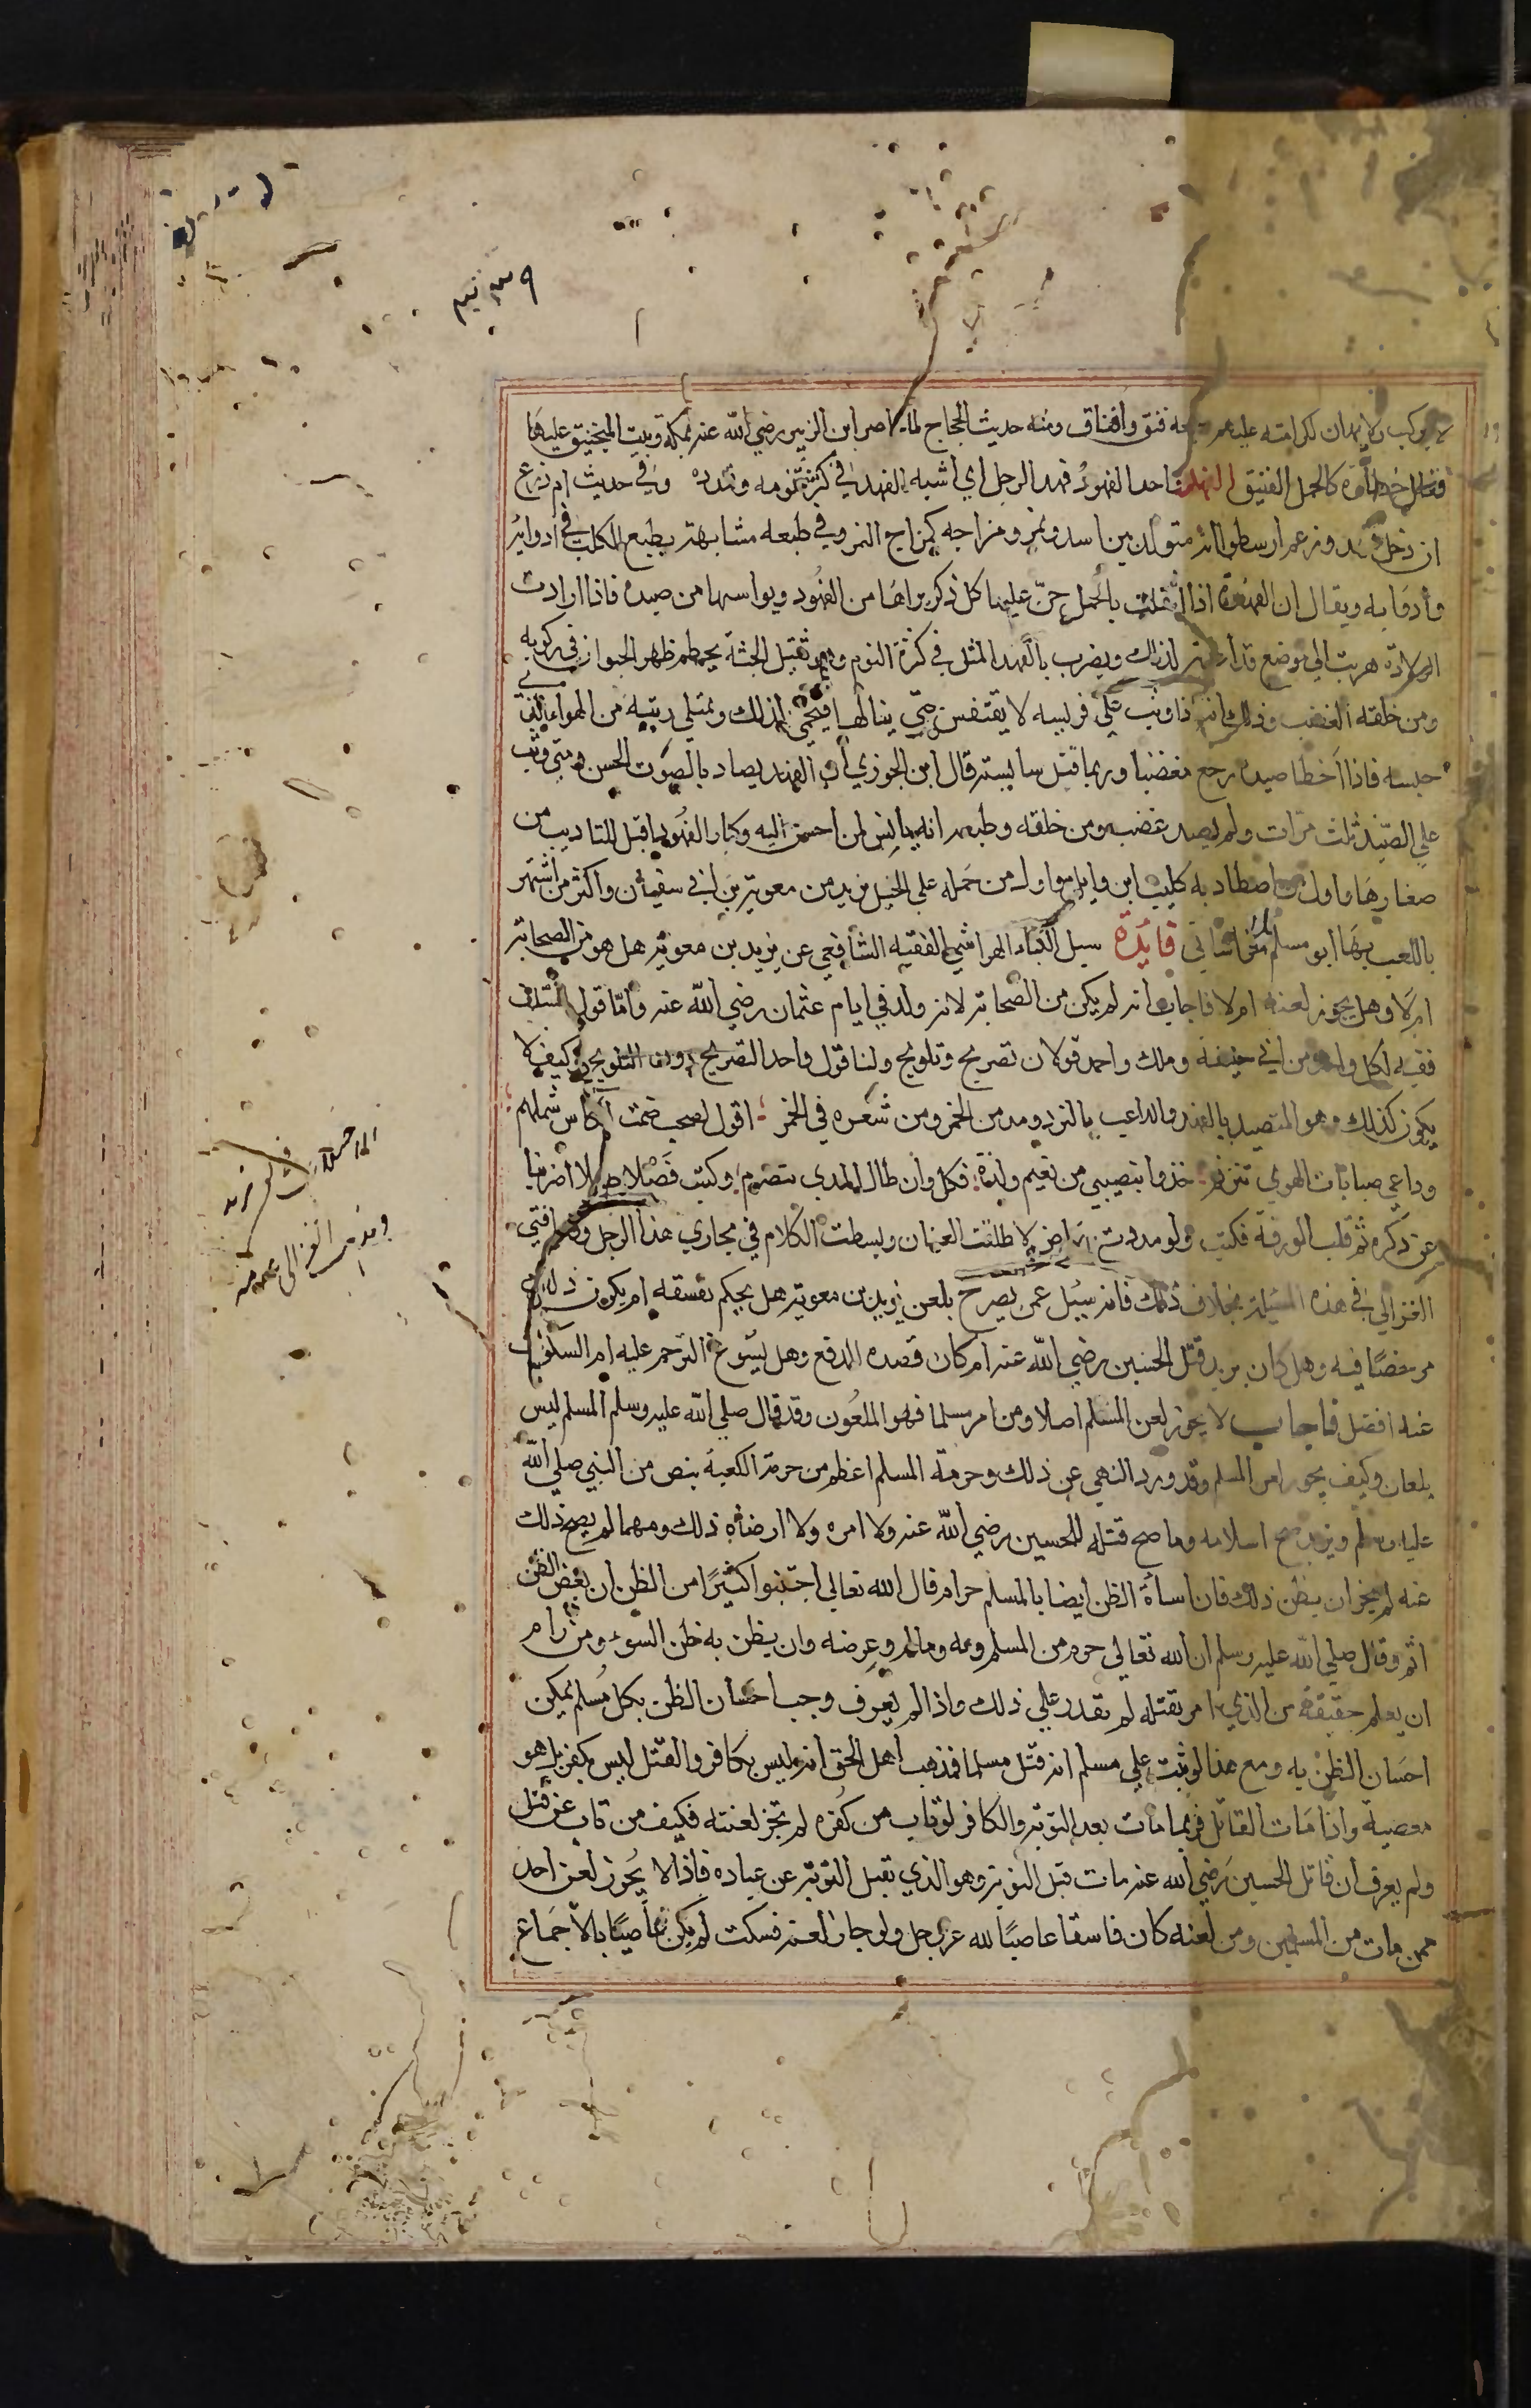 لا يركب ولا يهان لكرامته عليهم جمعه فنق وافناق ومنه حديث الحجاج لما حاصر ابن الزبير رضي الله عنه بمكة ونصب المنجنيق عليها
فقال خطارة كالجمل الفنيق الفهد واحد الفهود فهد الرجل اي اشبه الفهد في كثرة نومه وتمدده وفي حديث ام زرع
ان دخل فهد وزعم ارسطو انه متولد بين اسد ونمر ومزاجه كمزاج النمر وفي طبعه مشابهة بطبع الكلب في ادوائه
وأدوايه ويقال ان الفهدة اذا اثقلت بالحمل حنّ عليها كل ذكر يراها من الفهود ويواسيها من صيده فاذا ارادت
الولادة هربت الى موضع قد اعدته لذلك ويضرب بالفهد المثل في كثرة النوم وهو ثقيل الجثة يحطم ظهر الحيوان في ركوبه
ومن خلقه الغضب وذلك انه اذا وثب على فريسه لا يتنفس حتى ينالها فيحمى لذلك وتمتلي ريته من الهواء الذي
حبسه فاذا اخطا صيده رجع مغضبا وربما قتل سايسه قال ابن الجوزي ان الفهد يصاد بالصوت الحسن ومتى وثب
على الصيد ثلث مرات ولم يصد غضب ومن خلقه وطبعه انه يانس لمن احسن اليه وكبار الفهود اقبل للتاديب من
صغارها واول من اصطاد به كليب ابن وايل واول من حمله على الخيل يزيد من معوية بن ابي سفيان واكثر من اشتهر
باللعب بها ابو مسلم الخراساني فائدة سيل الكياء الهراشي الفقيه الشافعي عن يزيد بن معوية هل هو من الصحابة
ام لا وهل يجوز لعنه ام لا فاجاب انه لم يكن من الصحابة لانه ولد في ايام عثمان رضي الله عنه وامّا قول السلف
ففيه لكل واحد من ابي حنيفة وملك واحمد قولان تصريح وتلويح ولنا قول واحد التصريح دون التلويح وكيف لا
يكون كذلك وهو المتصيد بالفهد والداعب بالنرد ومدمن الخمر ومن شعره في الخمر اقول لصحب ضمت الكاس شملهم
وداعي صبابات الهوى تترنم خذوا بنصيبى من نعيم ولذة فكل وان طال المدى يتصرم وكتب فصلا طويلا اضربنا
عن ذكره ثم قلب الورقة فكتب ولو مددت ببياض لاطلقت العنان وبسطت الكلام في مجاري هذا الرجل وقد افتى
الغزالي في هذه المسئلة بخلاف ذلك فانه سيل عمن يصرح بلعن يزيد بن معوية هل يحكم بفسقه ام يكون ذلك
مرخصا فيه وهل كان يريد قتل الحسين رضي الله عنه ام كان قصده الدفع وهل يسوغ الترحم عليه ام السكوت
عنه افضل فاجاب لا يجوز لعن المسلم اصلا ومن لعن مسلما فهو الملعون وقد قال صلى الله عليه وسلم المسلم ليس
بلعان وكيف يجوز لعن المسلم وقد ورد النهي عن ذلك وحرمة المسلم اعظم من حرمة الكعبة بنص من النبي صلى الله
عليه وسلم ويزيد صح اسلامه وما صح قتله للحسين رضي الله عنه ولا امره ولا ارضاه ذلك ومهما لم يصح ذلك
عنه لم يجز ان يظن ذلك فان اساة الظن ايضا بالمسلم حرام قال الله تعالى اجتنبوا كثيرًا من الظن ان بعض الظن
اثم وقال صلى الله عليه وسلم ان الله تعالى حرم من المسلم دمه وماله وعرضه وان يظن به ظن السوء ومن رام
ان يعلم حقيقة من الذي امر بقتله لم يقدر على ذلك واذا لم يعرف وجب احسان الظن بكل مسلم يمكن
احسان الظن به ومع هذا لو ثبت على مسلم انه قتل مسلما فمذهب اهل الحق انه ليس بكافر والقتل ليس بكفر بل هو
معصية واذا مات القاتل فربما مات بعد التوبة والكافر لو تاب من كفره لم تجز لعنته فكيف من تاب عن قتل
ولم يعرف ان قاتل الحسين رضي الله عنه مات قبل التوبة وهو الذي يقبل التوبة عن عباده فاذا لا يجوز لعن احد
ممن مات من المسلمين ومن لعنه كان فاسقا عاصيًا لله عز وجل ولو جاز لعنه فسكت لم يكن عاصيًا بالاجماع